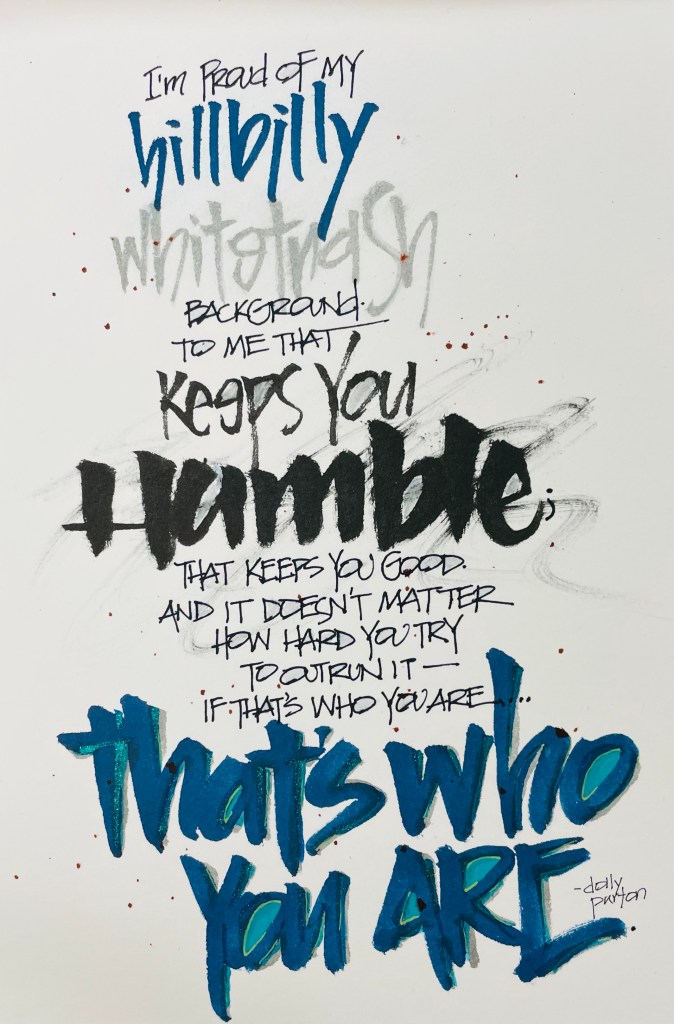 I'm Proud of my
hillbilly
whitetrash
BACKGROUND.
TO ME THAT
Keeps You
Humble;
THAT KEEPS YOU GOOD.
AND IT DOESN'T MATTER
HOW HARD YOU TRY
TO OUTRUN IT —
IF THAT'S WHO YOU ARE....
that's who
You ARE.
-dolly
parton